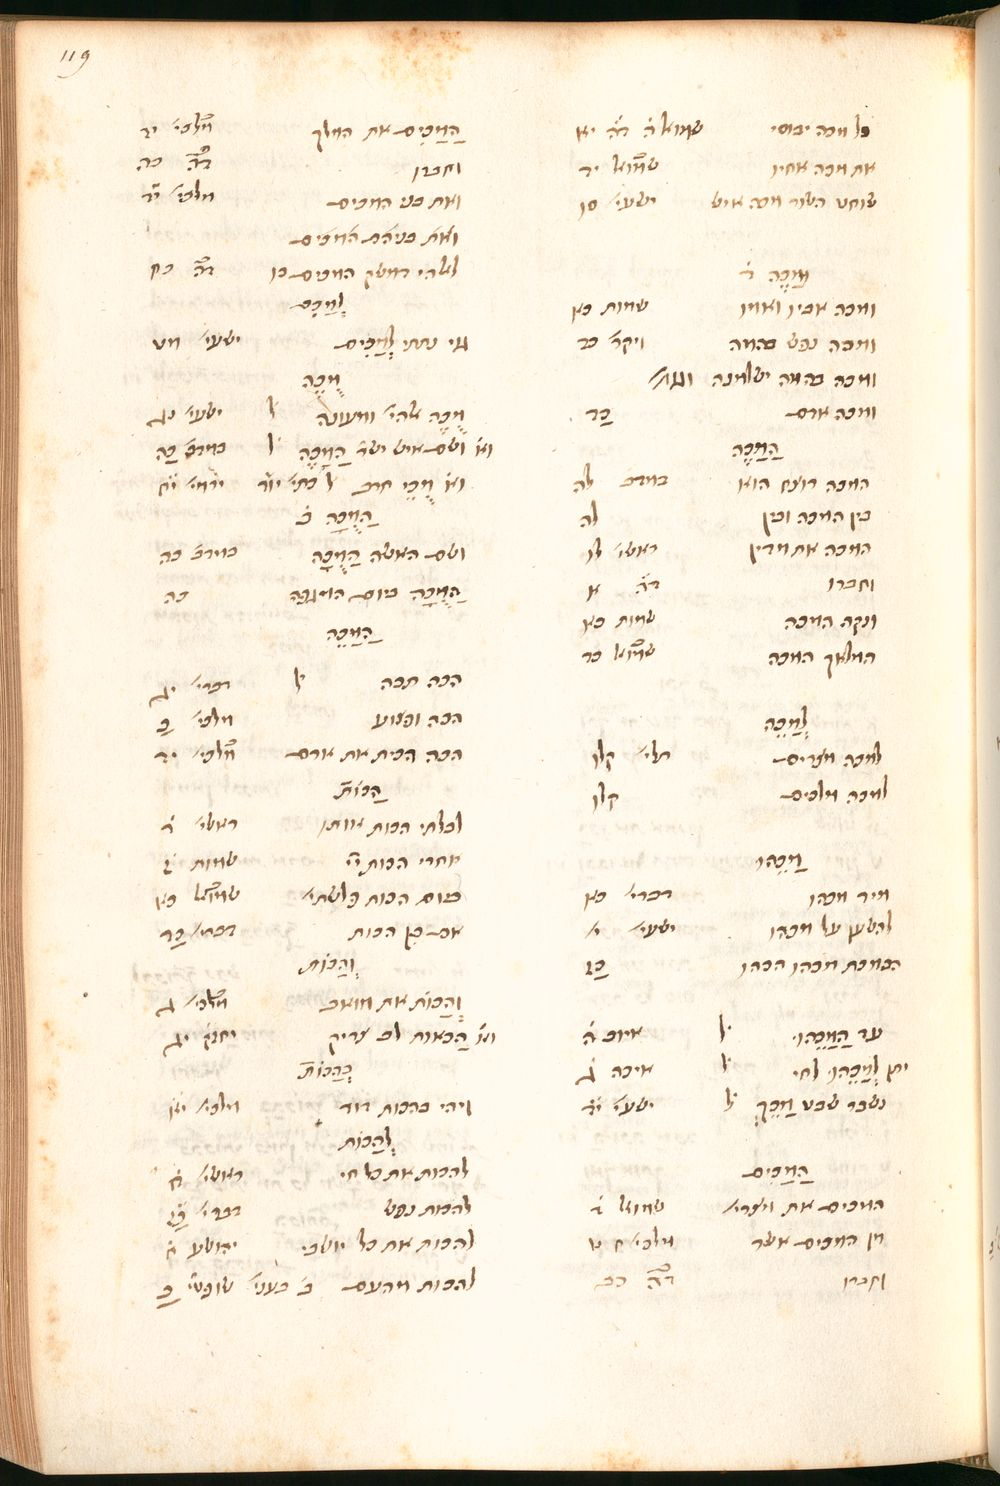 119
כל מכה יבוסי שמואל ה דה יא
את מכה אחיו שמואל יד
שוחט השור מכה איש ישעי׳ סו
וּמַכֵּה
ומכה אביו ואמו שמות כא
ומכה נפש בהמה ויקר׳ כד
ומכה בהמה ישלמנה
ומכה אדם כד
הַמַּכֶּה
המכה רוצח הוא במדב׳ לה
בין המכה ובין לה
המכה את מדין ראשי׳ לו
וחברו דה א
ונקה המכה שמות כא
המלאך המכה שמואל כד
לְמַכֵּה
למכה מצרים תלי׳ קלו
למכה מלכים קלו
מַכֵּהוּ
מיד מכהו דברי׳ כא
להשען על מכהו ישעי׳ י
הכמכת מכהו הכהו כז
עד הַמַּכֵּהוּ ל איוב ה
יתן לְמַכֵּהוּ לחי ל איכה ג
נשבר שבט מַכֵּךְ ל ישעי׳ יד
הַמַּכִּים
המכים את ויצרי׳ שמואל
מן המכים אשר מלכי׳ ח ט
וחברו דה כב
הַמַּכִּים את המלך מלכי׳ יד
וחברו דה כה
ואת בני המכים מלכי׳ יד
ואת בניהם המכים
לאלהי דמשק המכים בו דה כח
לְמַכִּים
גוי נתתי לְמַכִּים ישעי׳ נ
מֻכֵּה
מֻכֵּה אלהי׳ ומעונה ל ישעי׳ נג
וא׳ ושם איש ישר׳ הַמֻּכֶּה ל במדב׳ כה
וא׳ מֻכֵּי חרב ל ירמי׳ יח
הַמֻּכָּה ב
ושם האשה הַמֻּכָּה במדב׳ כה
הַמֻּכָּה ביום המגפה כה
הַמַּכֵּה
הכה תכה ל דברי׳ יג
הכה ופצוע מלכי׳ כ
הכה הכית את אדום מלכי׳ יד
הַכּוֹת
לבלתי הכות אותו ראשי׳ ד
אחרי הכות יי שמות ז
ביום הכות פלשתי׳ שמואל כא
אם בן הכות דברי׳ כד
וְהַכּוֹת
וְהַכּוֹת את מואב מלכי׳ ג
וא׳ הַכאות לב צדיק יחזק׳ יג
כְּהַכּוֹת
ויהי בהכות דוד מלכי׳ יא
לְהַכּוֹת
להכות את כל חי ראשי׳ ח
להכות נפש דברי׳ כז
להכות את כל יושבי יהושע ח
להכות מהעם ב בעני׳ שופטי׳ כ